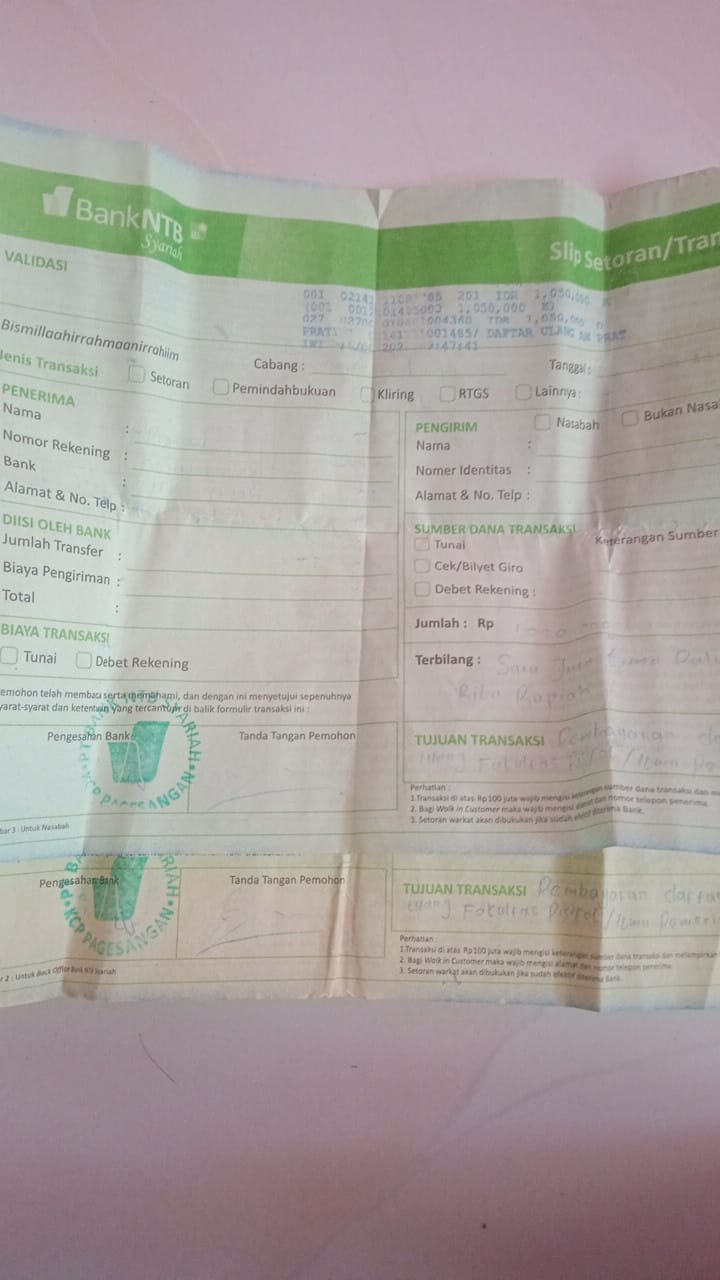 BankNTB
Syariah
Slip Setoran/Tran
VALIDASI
001 201 IDR 1,050,000 K
1,050,000 K)
027 IDR 1,050,000
001485/ DAFTAR ULANG AN PRAT
Bismillaahirrahmaanirrahiim
Jenis Transaksi
Setoran
Cabang :
Tanggal :
Pemindahbukuan
Kliring
RTGS
Lainnya :
PENERIMA
Nama :
Nomor Rekening :
Bank :
Alamat & No. Telp :
PENGIRIM
Nasabah
Bukan Nasa
Nama :
Nomer Identitas :
Alamat & No. Telp :
DIISI OLEH BANK
Jumlah Transfer :
Biaya Pengiriman :
Total :
SUMBER DANA TRANSAKSI
Keterangan Sumber
Tunai
Cek/Bilyet Giro
Debet Rekening :
Jumlah : Rp
BIAYA TRANSAKSI
Tunai
Debet Rekening
Terbilang : Satu Juta
Ribu Rupiah
emohon telah membaca serta memahami, dan dengan ini menyetujui sepenuhnya
yarat-syarat dan ketentuan yang tercantum di balik formulir transaksi ini :
Pengesahan Bank
Tanda Tangan Pemohon
KCP PAGESANGAN
TUJUAN TRANSAKSI Pembayaran
Ulang Fakultas
Perhatian :
1.Transaksi di atas Rp100 juta wajib mengisi keterangan sumber dana transaksi dan
2. Bagi Walk in Customer maka wajib mengisi alamat dan nomor telepon penerima.
3. Setoran warkat akan dibukukan jika sudah efektif diterima Bank.
bar 3 : Untuk Nasabah
Pengesahan Bank
Tanda Tangan Pemohon
KCP PAGESANGAN
TUJUAN TRANSAKSI Pembayaran dafta
Ulang Fakultas Fisipol/Ilmu Pemeri
Perhatian :
1.Transaksi di atas Rp100 juta wajib mengisi keterangan sumber dana transaksi dan melampirkan
2. Bagi Walk in Customer maka wajib mengisi alamat dan nomor telepon penerima.
3. Setoran warkat akan dibukukan jika sudah efektif diterima Bank.
ar 2 : Untuk Back Office Bank NTB Syariah